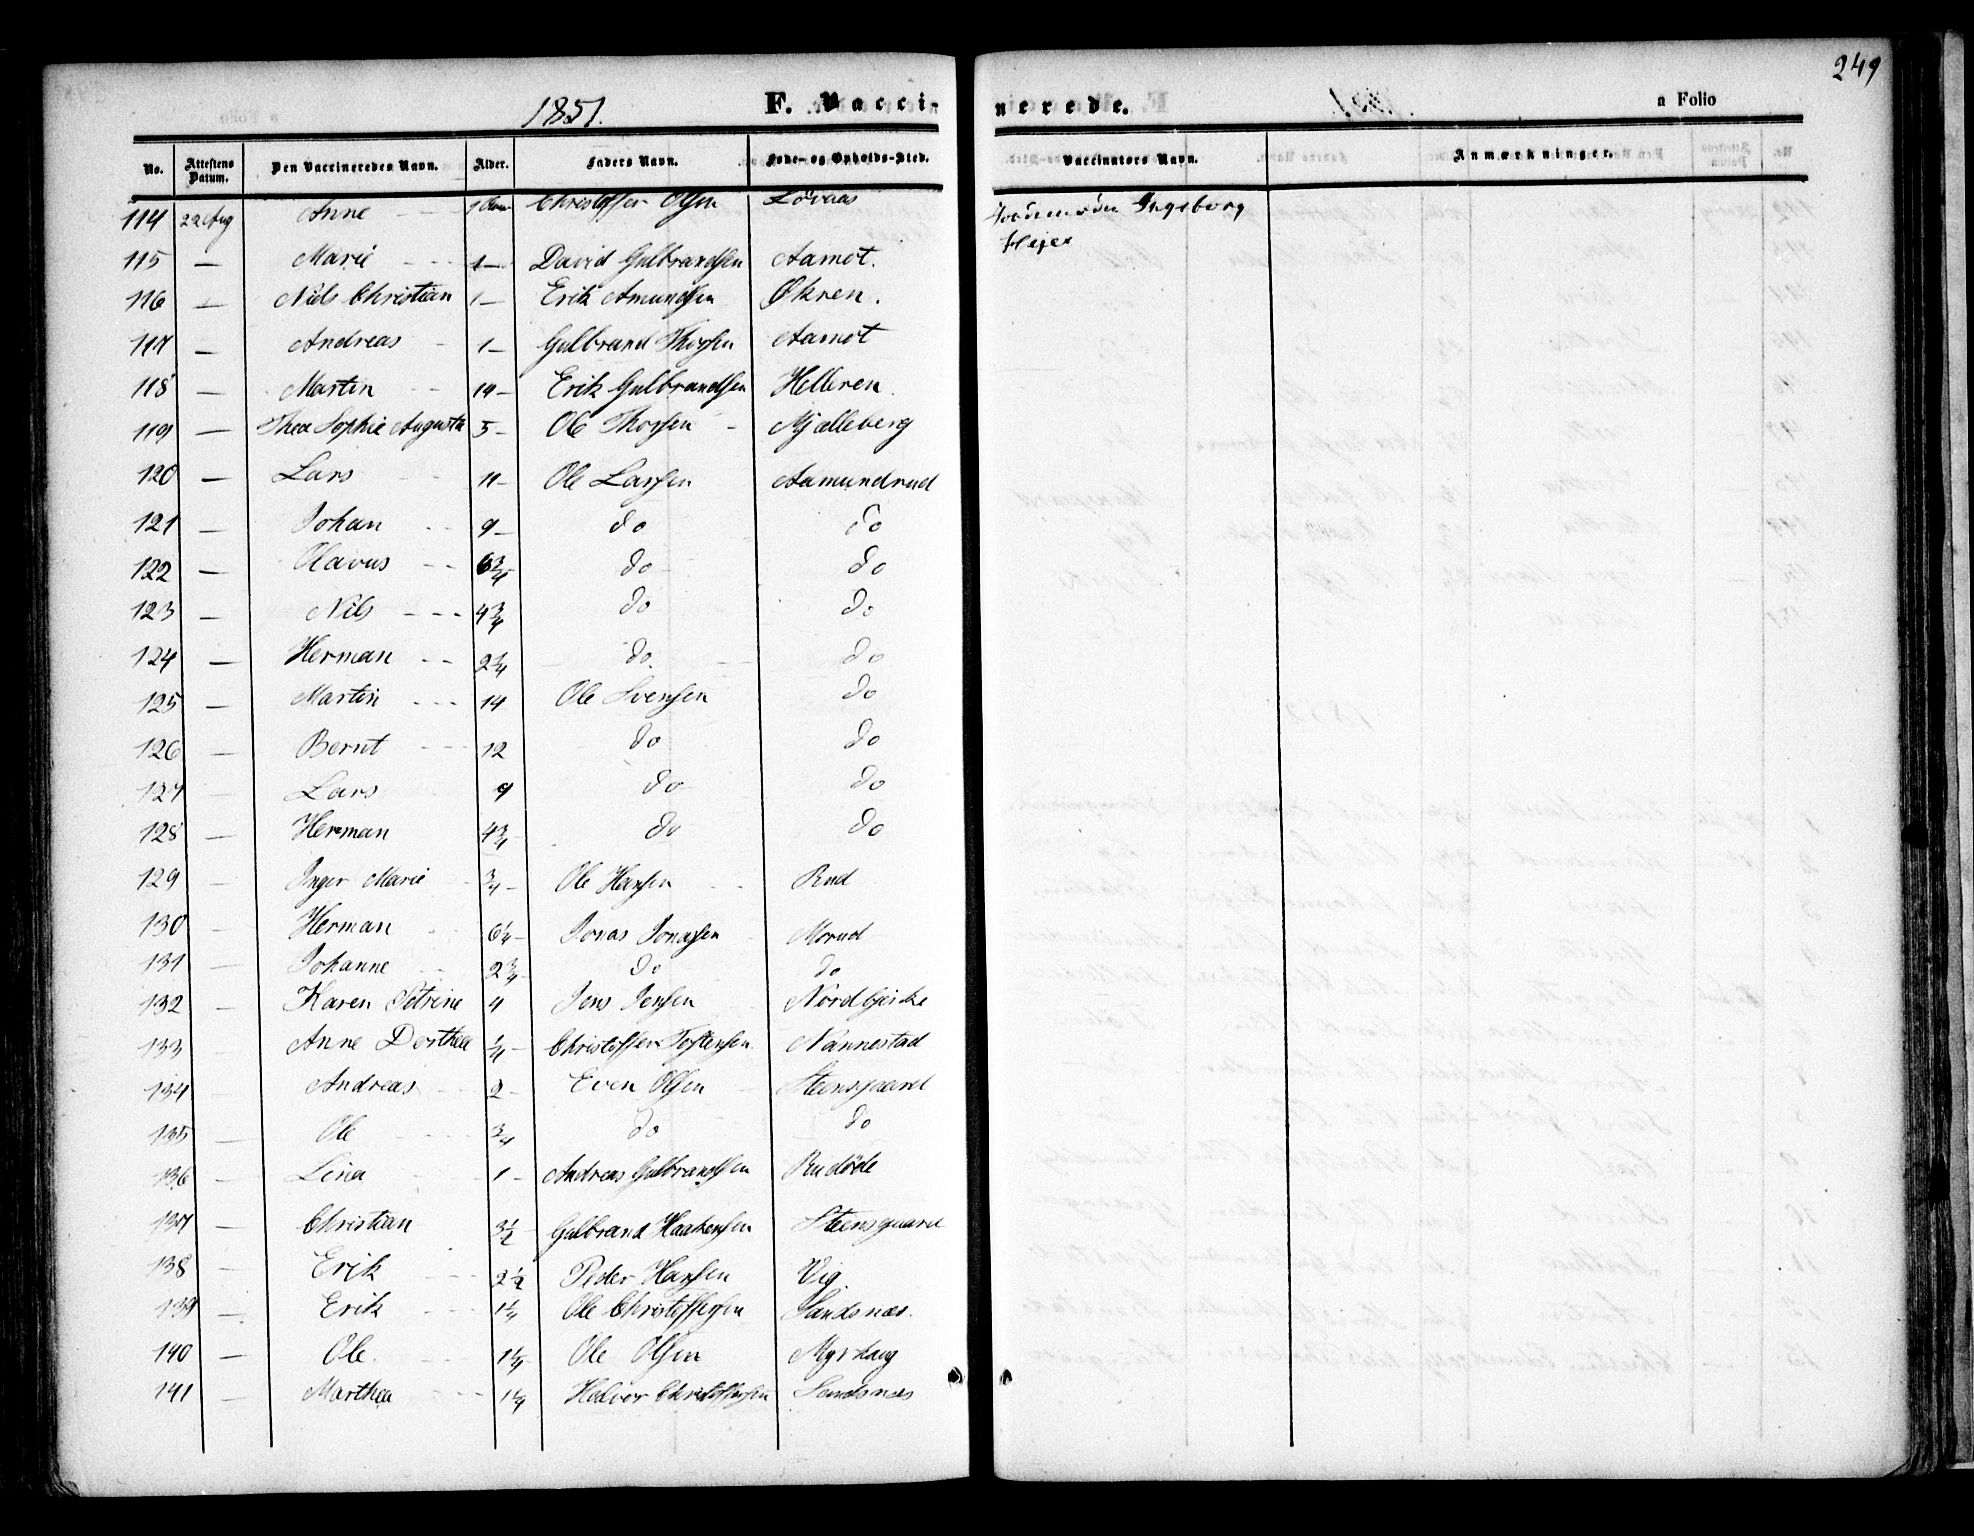 249
1851. F. Vacci- nerede. a Folio
No. Attestens Datum. Den Vaccineredes Navn. Alder. Faders Navn. Føde- og Opholds-Sted. Vaccinators Navn. Anmærkninger.
114 22 Aug Anne 1 Christoffer Olsen Løvaas Jordemoder Ingeborg
Hejer
115 — Marie 1 — David Gulbrandsen Aamot.
116 — Niels Christian 1 — Erik Amundsen Økren.
117 — Andreas 1 — Gulbrand Thorsen Aamot
118 — Martin 14 — Erik Gulbrandsen Helleren.
119 — Thea Sophie Augusta 5 — Ole Thorsen Mjælleberg
120 — Lars 11 — Ole Larssen Aamundrud
121 — Johan 9 — do do
122 — Olavus 6 3/4 do do
123 — Nils 4 3/4 do do
124 — Herman 2 3/4 do do
125 — Martin 14 Ole Svensen do
126 — Bernt 12 do do
127 — Lars 9 do do
128 — Herman 4 3/4 do do
129 — Inger Marie 3/4 — Ole Hansen Rud
130 — Herman 6 1/4 — Jonas Jonassen Morud
131 — Johanne 2 3/4 do do
132 — Karen Petrine 4 Jens Jensen Nordbye
133 — Anne Dorthea 1/4 — Christoffer Torstensen Nannestad
134 — Andreas 2 — Even Olsen Steensgaard
135 — Ole 3/4 do do
136 — Lina 1 — Andreas Gulbrandsen Rudøde
137 — Christian 3 1/2 — Gulbrand Haakensen Steensgaard
138 — Erik 2 1/2 Peder Hansen Vig.
139 — Erik 1 1/4 Ole Christoffersen Sandsnæs.
140 — Ole. 1 1/4 Ole Olsen Myrhaug
141 — Marthea 1 1/4 Halvor Christoffersen Sandsnæs